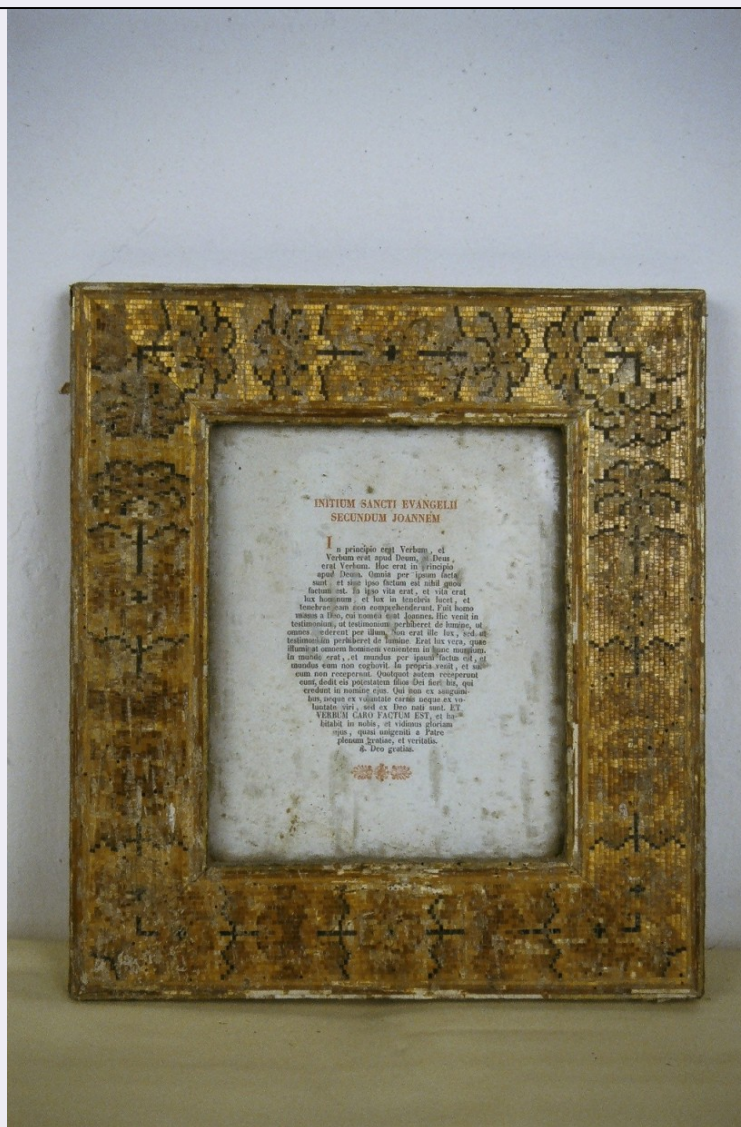 INITIUM SANCTI EVANGELII
SECUNDUM JOANNEM
In principio erat Verbum, et
Verbum erat apud Deum, et Deus
erat Verbum. Hoc erat in principio
apud Deum. Omnia per ipsum facta
sunt, et sine ipso factum est nihil quod
factum est. In ipso vita erat, et vita erat
lux hominum, et lux in tenebris lucet, et
tenebrae eam non comprehenderunt. Fuit homo
missus a Deo, cui nomen erat Joannes. Hic venit in
testimonium, ut testimonium perhiberet de lumine, ut
omnes crederent per illum. Non erat ille lux, sed ut
testimonium perhiberet de lumine. Erat lux vera, quae
illuminat omnem hominem venientem in hunc mundum.
In mundo erat, et mundus per ipsum factus est, et
mundus eum non cognovit. In propria venit, et sui
eum non receperunt. Quotquot autem receperunt
eum, dedit eis potestatem filios Dei fieri, his, qui
credunt in nomine ejus. Qui non ex sanguini-
bus, neque ex voluntate carnis neque ex vo-
luntate viri, sed ex Deo nati sunt. ET
VERBUM CARO FACTUM EST, et ha-
bitabit in nobis, et vidimus gloriam
ejus, quasi unigeniti a Patre
plenum gratiae, et veritatis.
Deo gratias.